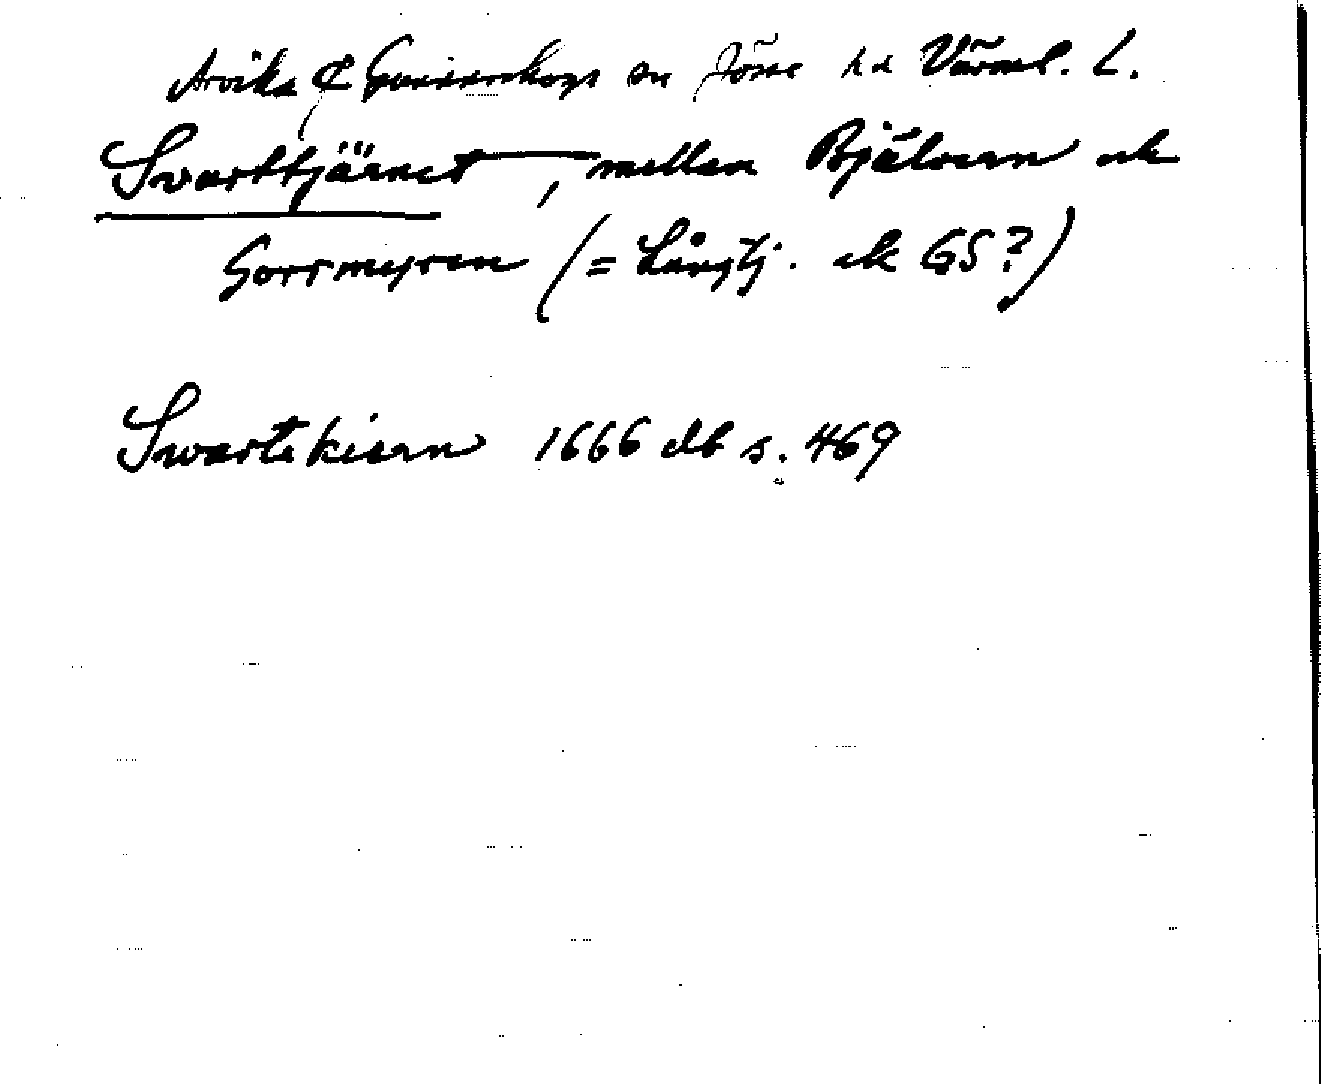 Arvika & Gunnarskogs sn Jösse hd Värml. L.
Svarttjärnet, mellan Bjälvern ock
Gorrmyren (= Långtj. ock GS?)
Swartekiern 1666 db s. 469